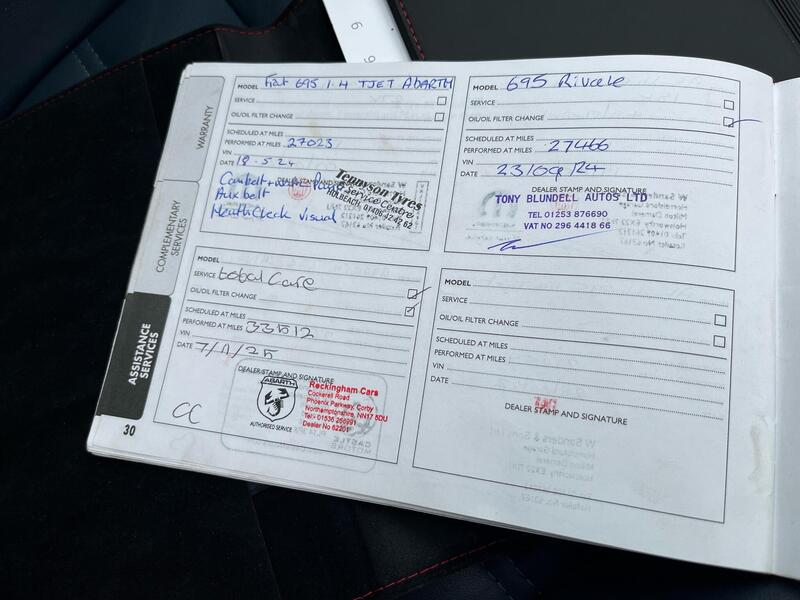 6
9
WARRANTY
COMPLEMENTARY
SERVICES
ASSISTANCE
SERVICES
30
MODEL Fiat 695 1.4 TJET ABARTH
SERVICE
OIL/OIL FILTER CHANGE
SCHEDULED AT MILES
PERFORMED AT MILES 27023
VIN
DATE 18.5.24
DEALER STAMP AND SIGNATURE
Cambelt + water Pump
Aux belt
Health Check Visual
Tennyson Tyres
& Service Centre
HOLBEACH, 01406 42 42 62
MODEL 695 Rivale
SERVICE
OIL/OIL FILTER CHANGE
SCHEDULED AT MILES
PERFORMED AT MILES 27466
VIN
DATE 23/09/24
DEALER STAMP AND SIGNATURE
TONY BLUNDELL AUTOS LTD
TEL 01253 876690
VAT NO 296 4418 66
MODEL
SERVICE
OIL/OIL FILTER CHANGE
SCHEDULED AT MILES
PERFORMED AT MILES 33512
VIN
DATE 7/11/25
DEALER STAMP AND SIGNATURE
ABARTH
AUTHORISED SERVICE
Rockingham Cars
Cockerell Road
Phoenix Parkway, Corby
Northamptonshire, NN17 5DU
Tel:- 01536 268991
Dealer No 62201
CC
MODEL
SERVICE
OIL/OIL FILTER CHANGE
SCHEDULED AT MILES
PERFORMED AT MILES
VIN
DATE
DEALER STAMP AND SIGNATURE